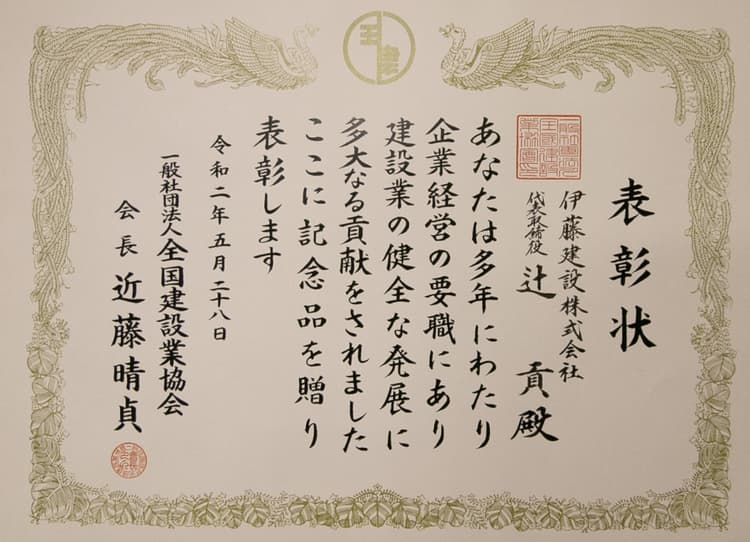 表彰状
伊藤建設株式会社
代表取締役 辻 貢殿
あなたは多年にわたり
企業経営の要職にあり
建設業の健全な発展に
多大なる貢献をされました
ここに記念品を贈り
表彰します
令和二年五月二十八日
一般社団法人全国建設業協会
会長 近藤晴貞